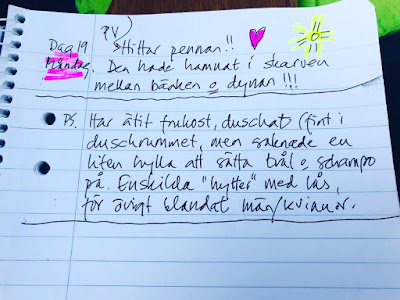 PV
Dag 19 Hittar pennan!!
Måndag. Den hade hamnat i skarven
mellan bänken o dynan!!!
PS. Har ätit frukost, duschat (fint i
duschrummet, men saknade en
liten hylla att sätta tvål o schampo
på. Enskilda "hytter" med lås,
för övrigt blandat män/kvinnor.